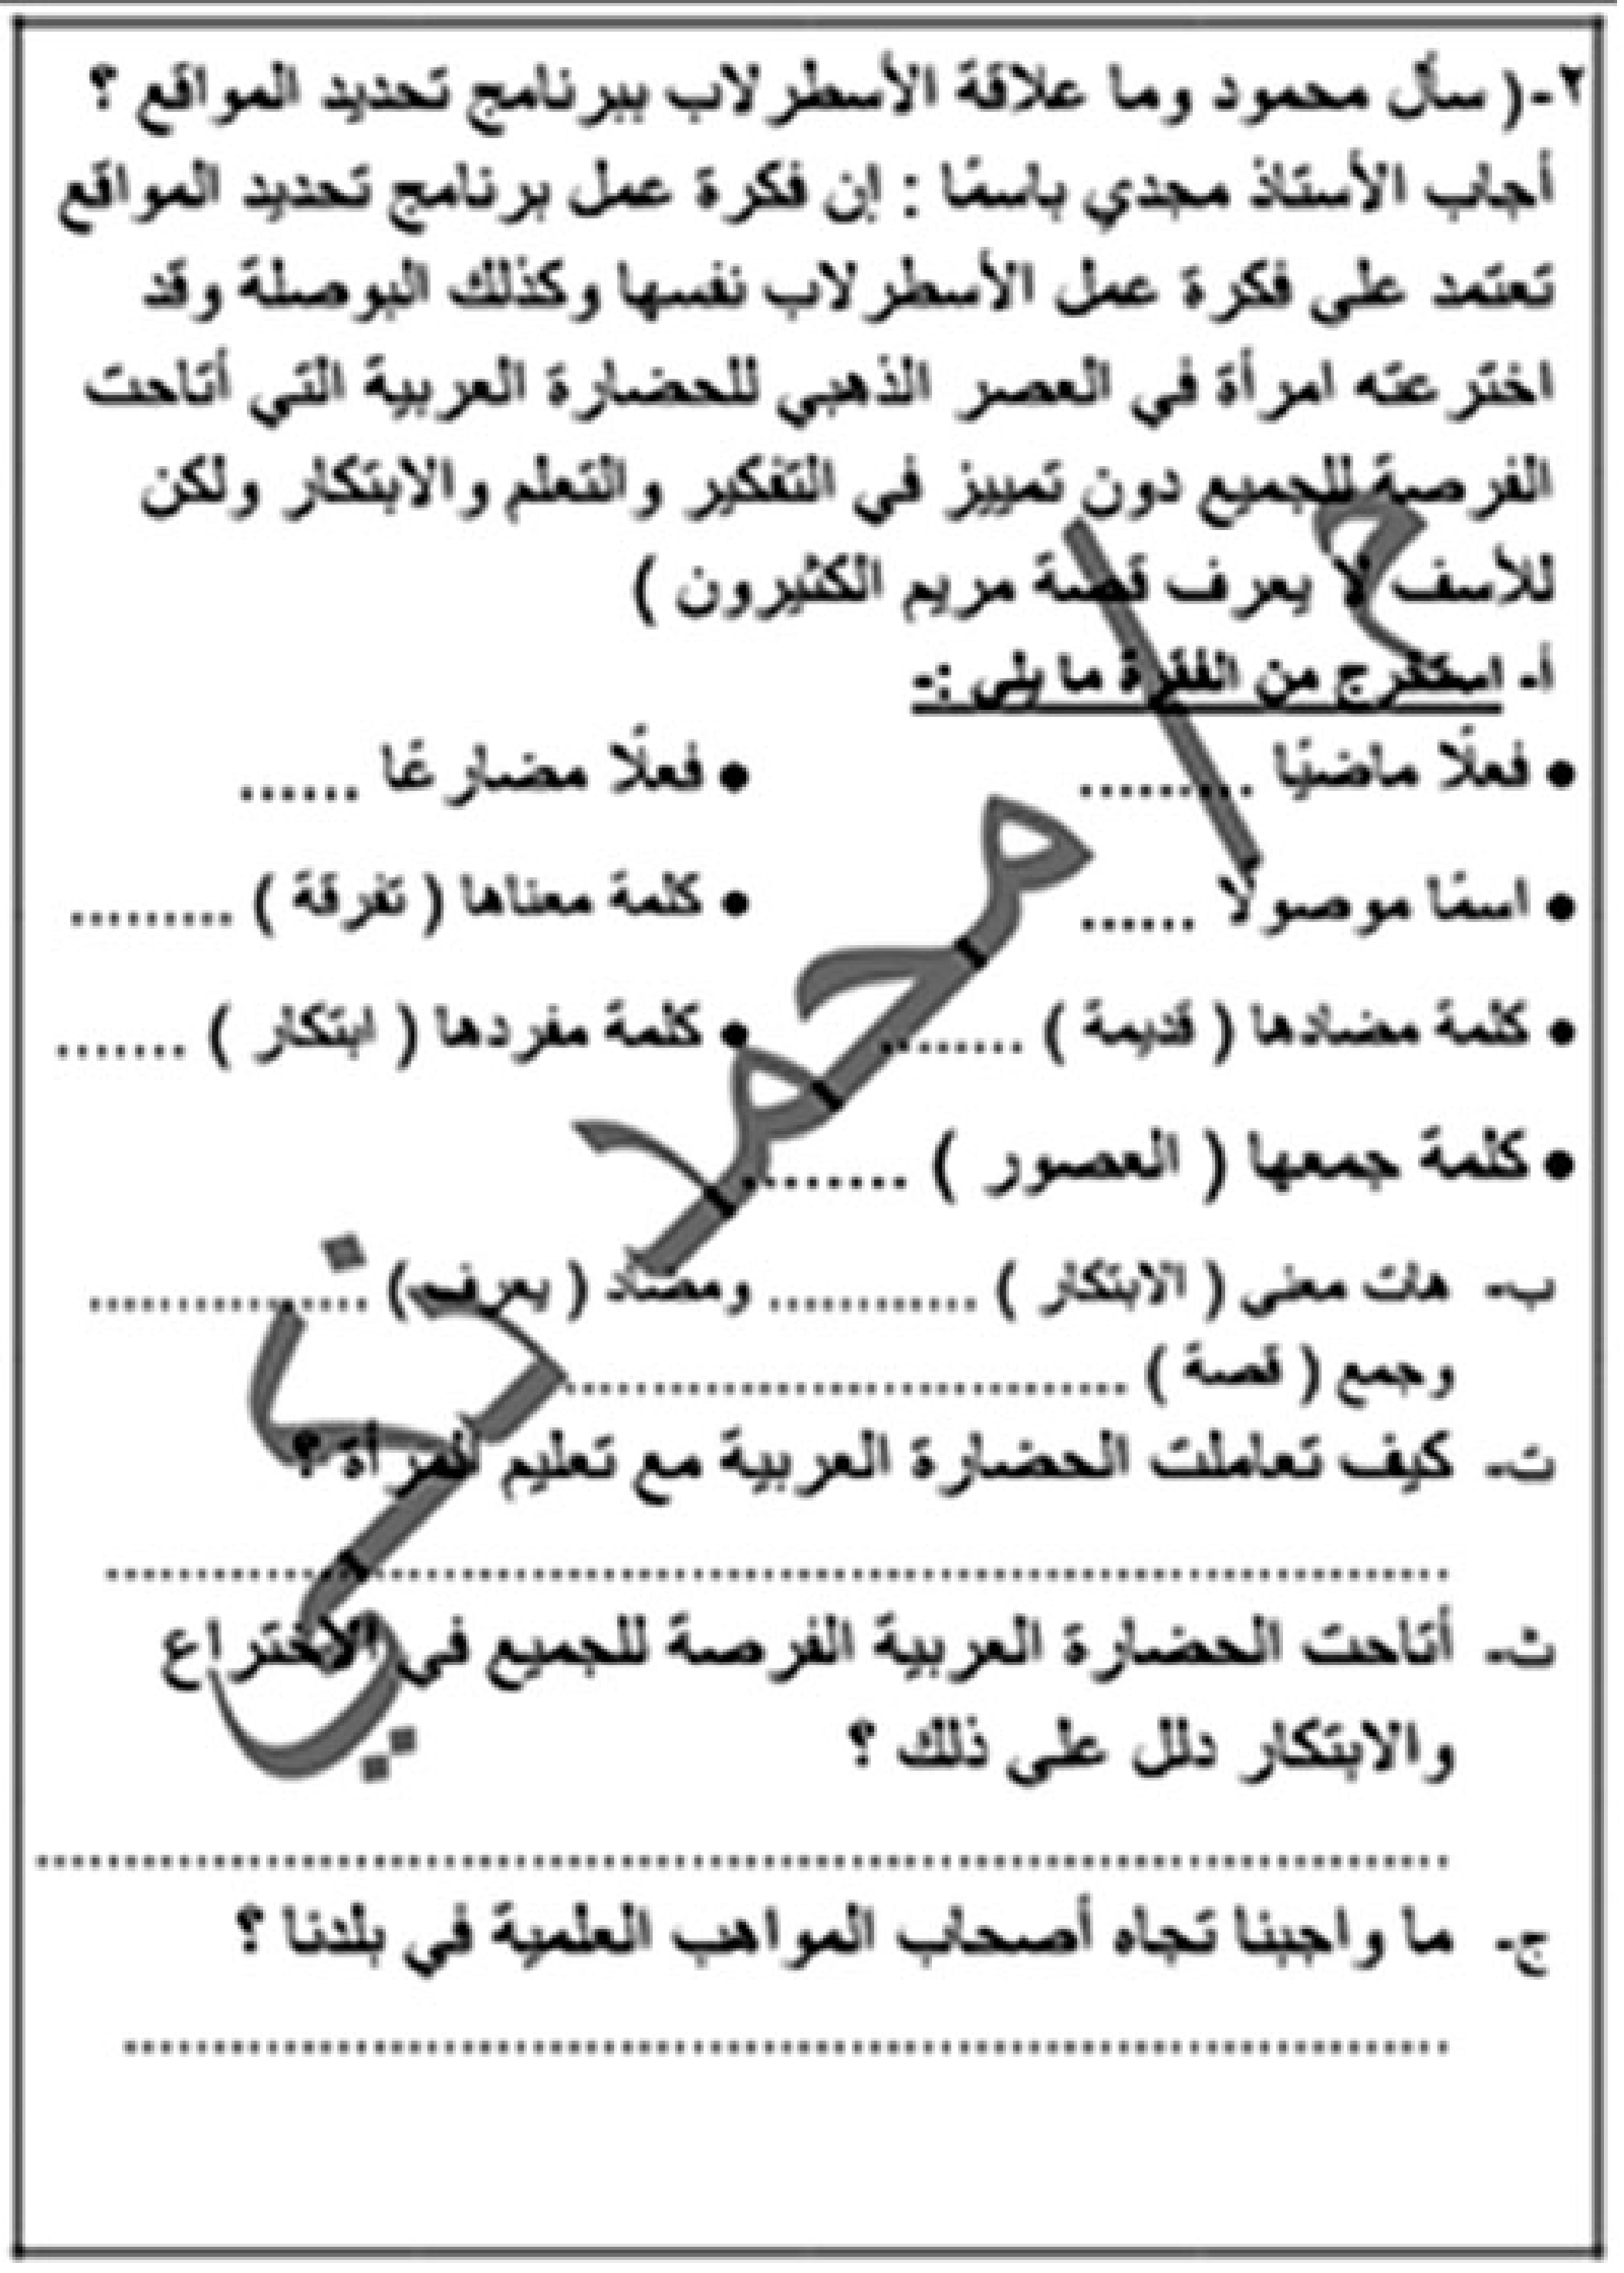 ٢-( سأل محمود وما علاقة الأسطرلاب ببرنامج تحديد المواقع ؟
أجاب الأستاذ مجدي باسمًا : إن فكرة عمل برنامج تحديد المواقع
تعتمد على فكرة عمل الأسطرلاب نفسها وكذلك البوصلة وقد
اخترعته امرأة في العصر الذهبي للحضارة العربية التي أتاحت
الفرصة للجميع دون تمييز في التفكير والتعلم والابتكار ولكن
للأسف لا يعرف قصة مريم الكثيرون )
أ- استخرج من الفقرة ما يلي :-
• فعلًا ماضيًا ......... • فعلًا مضارعًا ......
• اسمًا موصولًا ...... • كلمة معناها ( تفرقة ) .........
• كلمة مضادها ( قديمة ) ........ • كلمة مفردها ( ابتكار ) .......
• كلمة جمعها ( العصور ) .........
ب- هات معنى ( الابتكار ) ............ ومضاد ( يعرف ) ................
وجمع ( قصة ) ................................
ت- كيف تعاملت الحضارة العربية مع تعليم المرأة ؟
................................................................................
ث- أتاحت الحضارة العربية الفرصة للجميع في الاختراع
والابتكار دلل على ذلك ؟
................................................................................
ج- ما واجبنا تجاه أصحاب المواهب العلمية في بلدنا ؟
................................................................................